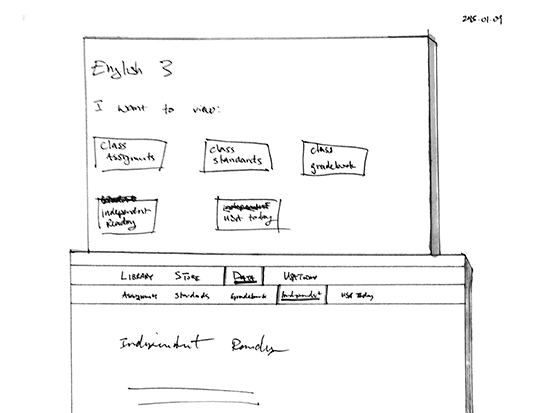 2015.01.09
English 3
I want to view:
Class Assignments
Class Standards
Class gradebook
Independent Reading
USA Today
LIBRARY STORE DATA USA TODAY
Assignments Standards Gradebook Independent USA Today
Independent Reading